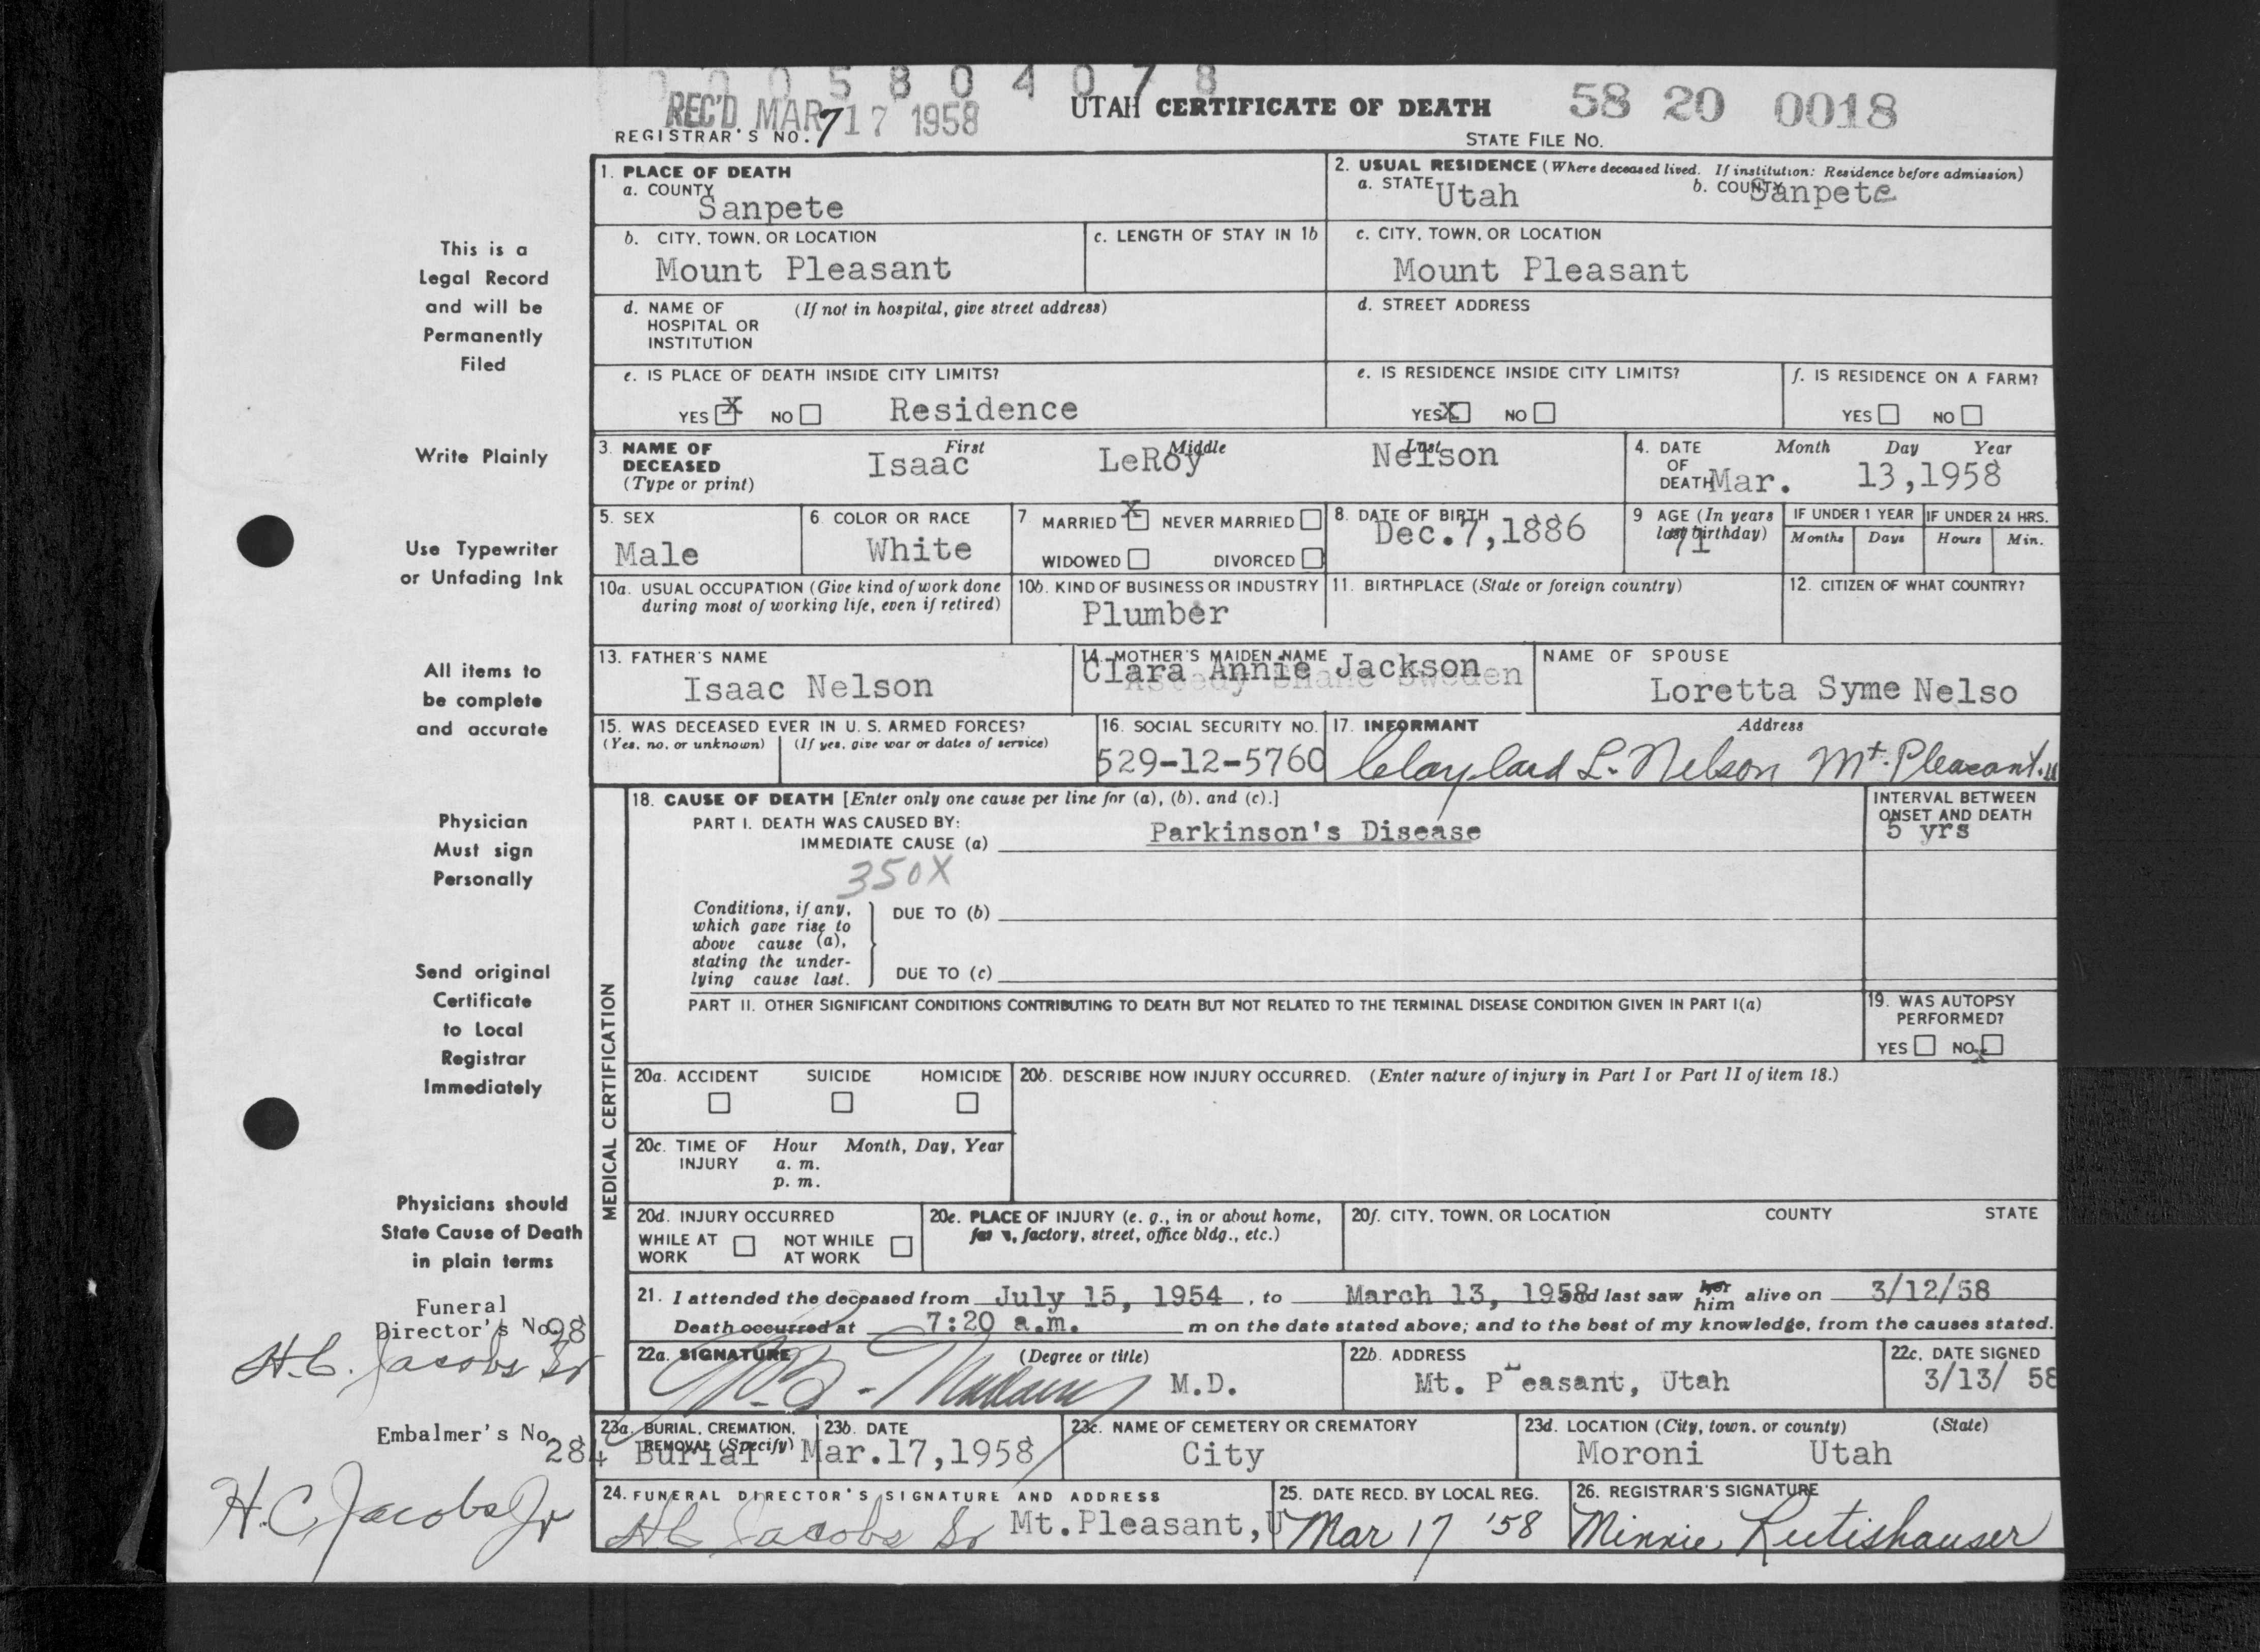 0 0 0 5 8 0 4 0 7 8
REC'D MAR 17 1958
UTAH CERTIFICATE OF DEATH
58 20 0018
REGISTRAR'S NO. 7
STATE FILE NO.
1. PLACE OF DEATH
a. COUNTY
Sanpete
2. USUAL RESIDENCE (Where deceased lived. If institution: Residence before admission)
a. STATE Utah
b. COUNTY Sanpete
b. CITY, TOWN, OR LOCATION
Mount Pleasant
c. LENGTH OF STAY IN 1b
c. CITY, TOWN, OR LOCATION
Mount Pleasant
d. NAME OF (If not in hospital, give street address)
HOSPITAL OR
INSTITUTION
d. STREET ADDRESS
e. IS PLACE OF DEATH INSIDE CITY LIMITS?
YES X NO Residence
e. IS RESIDENCE INSIDE CITY LIMITS?
YES X NO
f. IS RESIDENCE ON A FARM?
YES NO
3. NAME OF DECEASED (Type or print)
First Middle Last
Isaac LeRoy Nelson
4. DATE OF DEATH
Month Day Year
Mar. 13,1958
5. SEX
Male
6. COLOR OR RACE
White
7 MARRIED X NEVER MARRIED
WIDOWED DIVORCED
8. DATE OF BIRTH
Dec.7,1886
9 AGE (In years last birthday)
71
IF UNDER 1 YEAR
Months Days
IF UNDER 24 HRS.
Hours Min.
10a. USUAL OCCUPATION (Give kind of work done
during most of working life, even if retired)
10b. KIND OF BUSINESS OR INDUSTRY
Plumber
11. BIRTHPLACE (State or foreign country)
12. CITIZEN OF WHAT COUNTRY?
13. FATHER'S NAME
Isaac Nelson
14. MOTHER'S MAIDEN NAME
Clara Annie Jackson
NAME OF SPOUSE
Loretta Syme Nelso
15. WAS DECEASED EVER IN U. S. ARMED FORCES?
(Yes, no, or unknown) (If yes, give war or dates of service)
16. SOCIAL SECURITY NO.
529-12-5760
17. INFORMANT Address
L. Nelson Mt. Pleasant, U
MEDICAL CERTIFICATION
18. CAUSE OF DEATH [Enter only one cause per line for (a), (b), and (c).]
PART I. DEATH WAS CAUSED BY:
IMMEDIATE CAUSE (a) Parkinson's Disease
350X
INTERVAL BETWEEN
ONSET AND DEATH
5 yrs
Conditions, if any,
which gave rise to
above cause (a),
stating the under-
lying cause last.
DUE TO (b)
DUE TO (c)
PART II. OTHER SIGNIFICANT CONDITIONS CONTRIBUTING TO DEATH BUT NOT RELATED TO THE TERMINAL DISEASE CONDITION GIVEN IN PART I(a)
19. WAS AUTOPSY
PERFORMED?
YES NO X
20a. ACCIDENT SUICIDE HOMICIDE
20b. DESCRIBE HOW INJURY OCCURRED. (Enter nature of injury in Part I or Part II of item 18.)
20c. TIME OF INJURY
Hour Month, Day, Year
a. m.
p. m.
20d. INJURY OCCURRED
WHILE AT WORK
NOT WHILE AT WORK
20e. PLACE OF INJURY (e. g., in or about home,
factory, street, office bldg., etc.)
20f. CITY, TOWN, OR LOCATION COUNTY STATE
21. I attended the deceased from July 15, 1954, to March 13, 1958 and last saw her him alive on 3/12/58
Death occurred at 7:20 a.m. m on the date stated above; and to the best of my knowledge, from the causes stated.
22a. SIGNATURE (Degree or title)
M.D.
22b. ADDRESS
Mt. Pleasant, Utah
22c. DATE SIGNED
3/13/ 58
23a. BURIAL, CREMATION,
REMOVAL (Specify)
Burial
23b. DATE
Mar.17,1958
23c. NAME OF CEMETERY OR CREMATORY
City
23d. LOCATION (City, town, or county) (State)
Moroni Utah
24. FUNERAL DIRECTOR'S SIGNATURE AND ADDRESS
H C Jacobs Sr Mt.Pleasant,U
25. DATE RECD. BY LOCAL REG.
Mar 17 '58
26. REGISTRAR'S SIGNATURE
Minnie Rutishauser
This is a
Legal Record
and will be
Permanently
Filed
Write Plainly
Use Typewriter
or Unfading Ink
All items to
be complete
and accurate
Physician
Must sign
Personally
Send original
Certificate
to Local
Registrar
Immediately
Physicians should
State Cause of Death
in plain terms
Funeral
Director's No. 98
H.C. Jacobs Sr
Embalmer's No.
284
H.C. Jacobs Jr